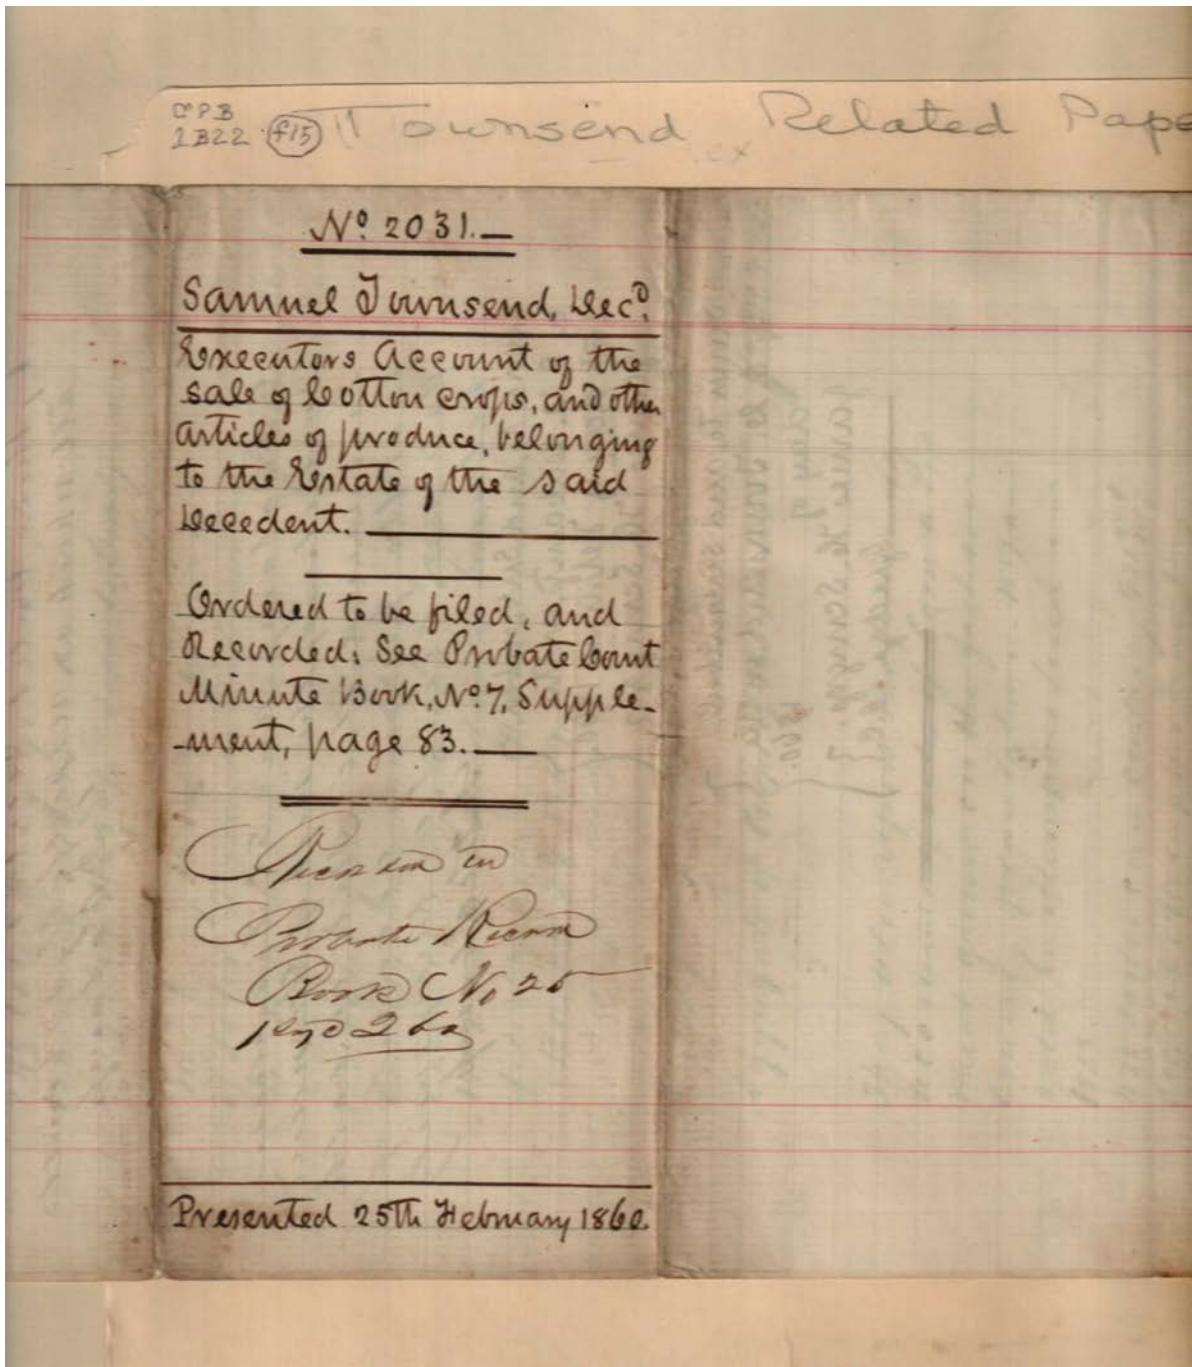 CPB
1B22 f15 Townsend Related Pape
No. 2031.
Samuel Townsend, Decd.
Executors Account of the
sale of Cotton crops, and other
articles of produce, belonging
to the Estate of the said
Decedent.
Ordered to be filed, and
Recorded: See Probate Court
Minute Book, No. 7, Supple-
-ment, page 83.
in
Probate Record
Book No 25
Presented 25th February 1860.